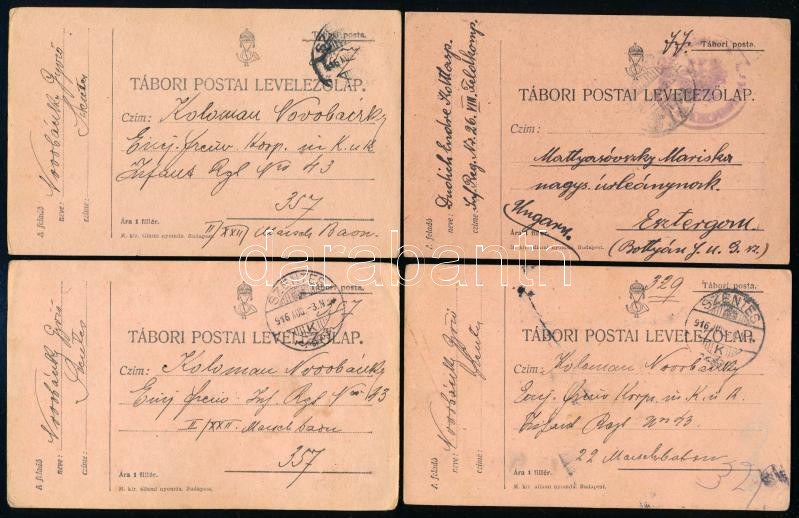 Tábori posta.
TÁBORI POSTAI LEVELEZŐLAP.
Czím: Koloman Novobáczky
Einj. Freiw Korp. in K. u. K.
Infant Rgl Nro 43
357
II/XXII Marsch Baon.
Ára 1 fillér.
M. kir. állami nyomda. Budapest.
A feladó
neve: Novobáczky Győző
czíme: Szentes
Tábori posta.
TÁBORI POSTAI LEVELEZŐLAP.
Czím:
Mattyasóvszky Mariska
nagys. urleánynak.
Esztergom
(Bottyán J. u. 3. sz.)
Ungarn
Ára 1 fillér.
M. kir. állami nyomda. Budapest.
A feladó
neve: Endre Korp.
czíme: Inf. Reg. Nr. 26. VIII. Feldkomp.
Tábori posta.
SZENTES
916 AUG. -3. N
K
357
TÁBORI POSTAI LEVELEZŐLAP.
Czím: Koloman Novobáczky
Einj Freiw Inf. Rgl Nro 43
II/XXII. Marsch baon
357
Ára 1 fillér.
M. kir. állami nyomda. Budapest.
A feladó
neve: Novobáczky Győző
czíme: Szentes
329
Tábori posta.
SZENTES
916 AUG.
K
TÁBORI POSTAI LEVELEZŐLAP.
Czím: Koloman Novobáczky
Einj. Freiw Korp. in K. u. K.
Infant Rgl Nro 43.
22 Marschbataon
Ára 1 fillér.
M. kir. állami nyomda. Budapest.
A feladó
neve: Novobáczky Győző
czíme: Szentes
darabanth